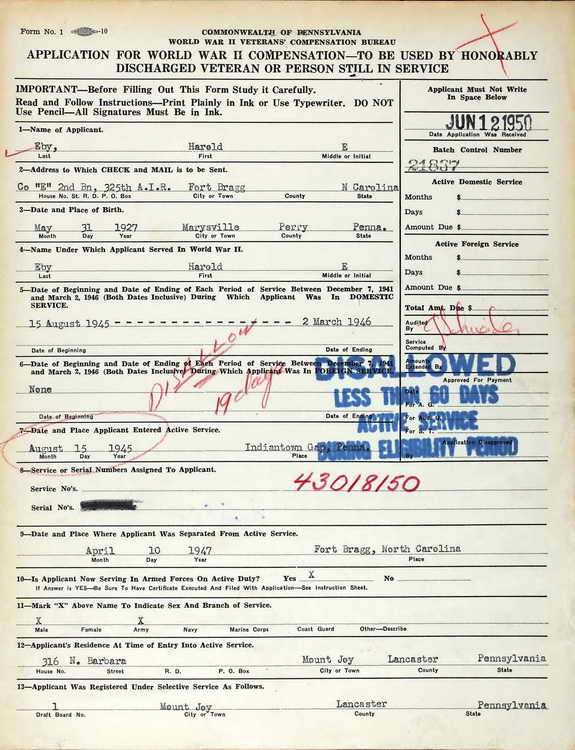 Form No. 1 -10
COMMONWEALTH OF PENNSYLVANIA
WORLD WAR II VETERANS' COMPENSATION BUREAU
APPLICATION FOR WORLD WAR II COMPENSATION—TO BE USED BY HONORABLY
DISCHARGED VETERAN OR PERSON STILL IN SERVICE
IMPORTANT—Before Filling Out This Form Study it Carefully.
Read and Follow Instructions—Print Plainly in Ink or Use Typewriter. DO NOT
Use Pencil—All Signatures Must Be in Ink.
Applicant Must Not Write
In Space Below
JUN 12 1950
Date Application Was Received
1—Name of Applicant.
Eby, Harold E
Last First Middle or Initial
Batch Control Number
21837
2—Address to Which CHECK and MAIL is to be Sent.
Co "E" 2nd Bn, 325th A.I.R. Fort Bragg N Carolina
House No. St. R. D. P. O. Box City or Town County State
Active Domestic Service
Months $
Days $
Amount Due $
3—Date and Place of Birth.
May 31 1927 Marysville Perry Penna.
Month Day Year City or Town County State
4—Name Under Which Applicant Served In World War II.
Eby Harold E
Last First Middle or Initial
Active Foreign Service
Months $
Days $
Amount Due $
5—Date of Beginning and Date of Ending of Each Period of Service Between December 7, 1941
and March 2, 1946 (Both Dates Inclusive) During Which Applicant Was In DOMESTIC
SERVICE.
15 August 1945 - - - - - - - - - - - - - - - - 2 March 1946
Date of Beginning Date of Ending
Total Amt. Due $
Audited
By
Service
Computed By
Amounts
Extended By
Approved For Payment
6—Date of Beginning and Date of Ending of Each Period of Service Between December 7, 1941
and March 2, 1946 (Both Dates Inclusive) During Which Applicant Was In FOREIGN SERVICE.
None
Date of Beginning Date of Ending
DISALLOW
19 days
DISALLOWED
LESS THAN 60 DAYS
ACTIVE SERVICE
DURING ELIGIBILITY PERIOD
Date
For A. G.
For S. T.
Application Disapproved
7—Date and Place Applicant Entered Active Service.
August 15 1945 Indiantown Gap, Penna.
Month Day Year Place
8—Service or Serial Numbers Assigned To Applicant.
43018150
Service No's.
Serial No's.
9—Date and Place Where Applicant Was Separated From Active Service.
April 10 1947 Fort Bragg, North Carolina
Month Day Year Place
10—Is Applicant Now Serving In Armed Forces On Active Duty? Yes X No
If Answer is YES—Be Sure To Have Certificate Executed And Filed With Application—See Instruction Sheet.
11—Mark "X" Above Name To Indicate Sex And Branch of Service.
X X
Male Female Army Navy Marine Corps Coast Guard Other—Describe
12—Applicant's Residence At Time of Entry Into Active Service.
316 N. Barbara Mount Joy Lancaster Pennsylvania
House No. Street R. D. P. O. Box City or Town County State
13—Applicant Was Registered Under Selective Service As Follows.
1 Mount Joy Lancaster Pennsylvania
Draft Board No. City or Town County State